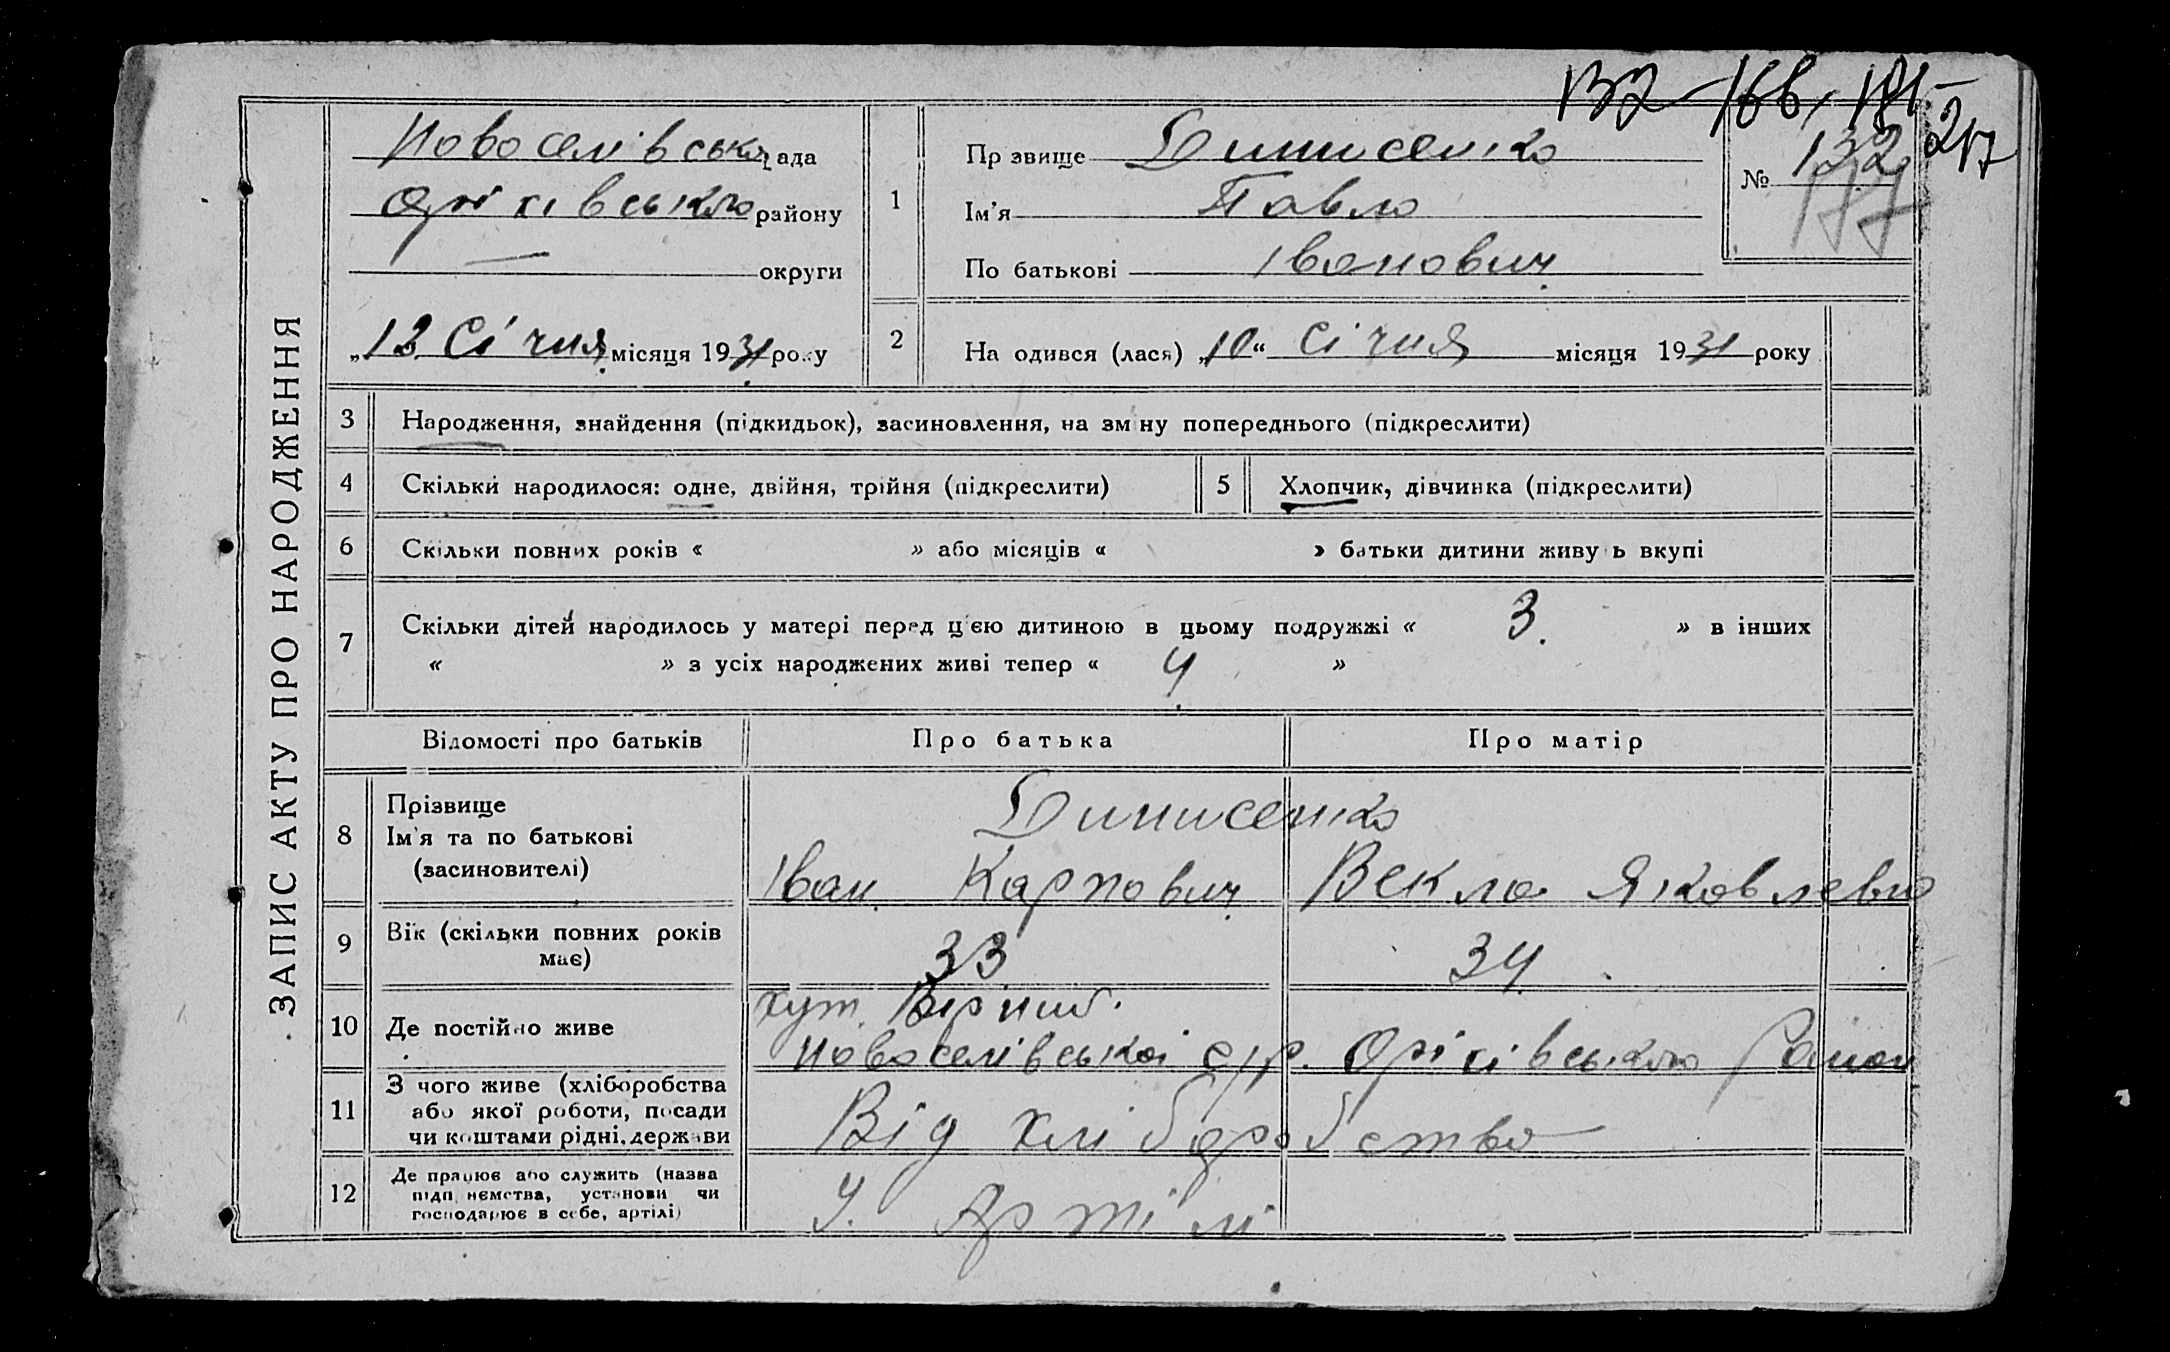 132-166, 181-217
ЗАПИС АКТУ ПРО НАРОДЖЕННЯ
Новоселівська рада
Оріхівського району
— округи
„13 Січня місяця 1931 року
1
Прізвище Динисенко
Ім'я Павло
По батькові Іванович
№ 132
177
2
Народився (лася) „10“ Січня місяця 1931 року
3 Народження, знайдення (підкидьок), засиновлення, на зміну попереднього (підкреслити)
4 Скільки народилося: одне, двійня, трійня (підкреслити) 5 Хлопчик, дівчинка (підкреслити)
6 Скільки повних років « » або місяців « » батьки дитини живуть вкупі
7 Скільки дітей народилось у матері перед цією дитиною в цьому подружжі « 3. » в інших
« » з усіх народжених живі тепер « 4 »
Відомості про батьків Про батька Про матір
8 Прізвище
Ім'я та по батькові
(засиновителі)
Динисенко
Іван Карпович Векла Яковлевна
9 Вік (скільки повних років
має)
33 34
10 Де постійно живе
хут. Вірний.
Новоселівської с/р. Оріхівського Району
11 З чого живе (хліборобства
або якої роботи, посади
чи коштами рідні, держави
Від хліборобства
12 Де працює або служить (назва
підприємства, установи чи
господарює в себе, артілі)
У. Артілі